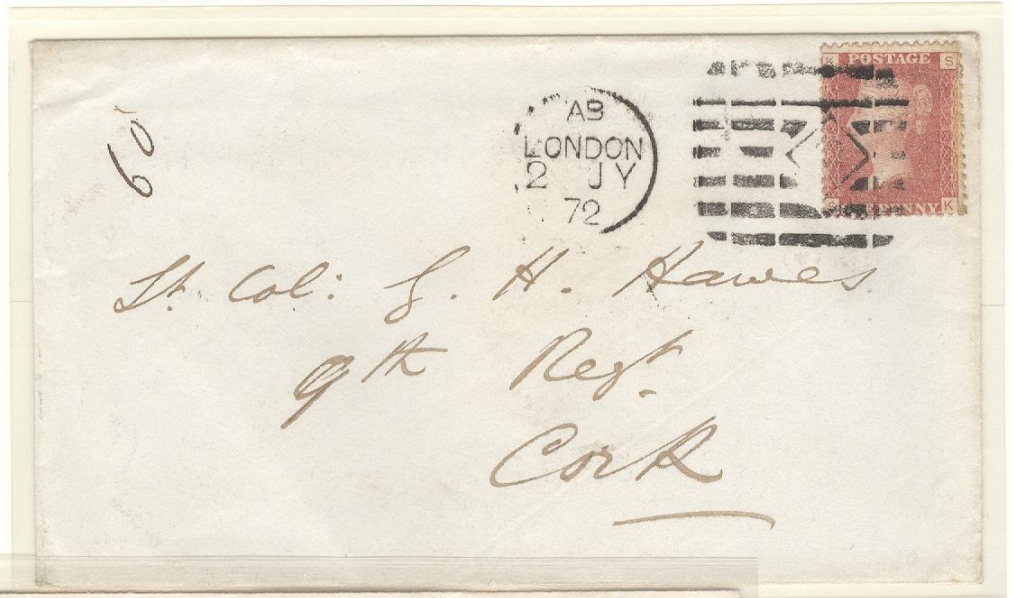 60
AB
LONDON
2 JY
72
K POSTAGE S
S PENNY K
Lt. Col: G. H. Hawes
9th Regt.
Cork